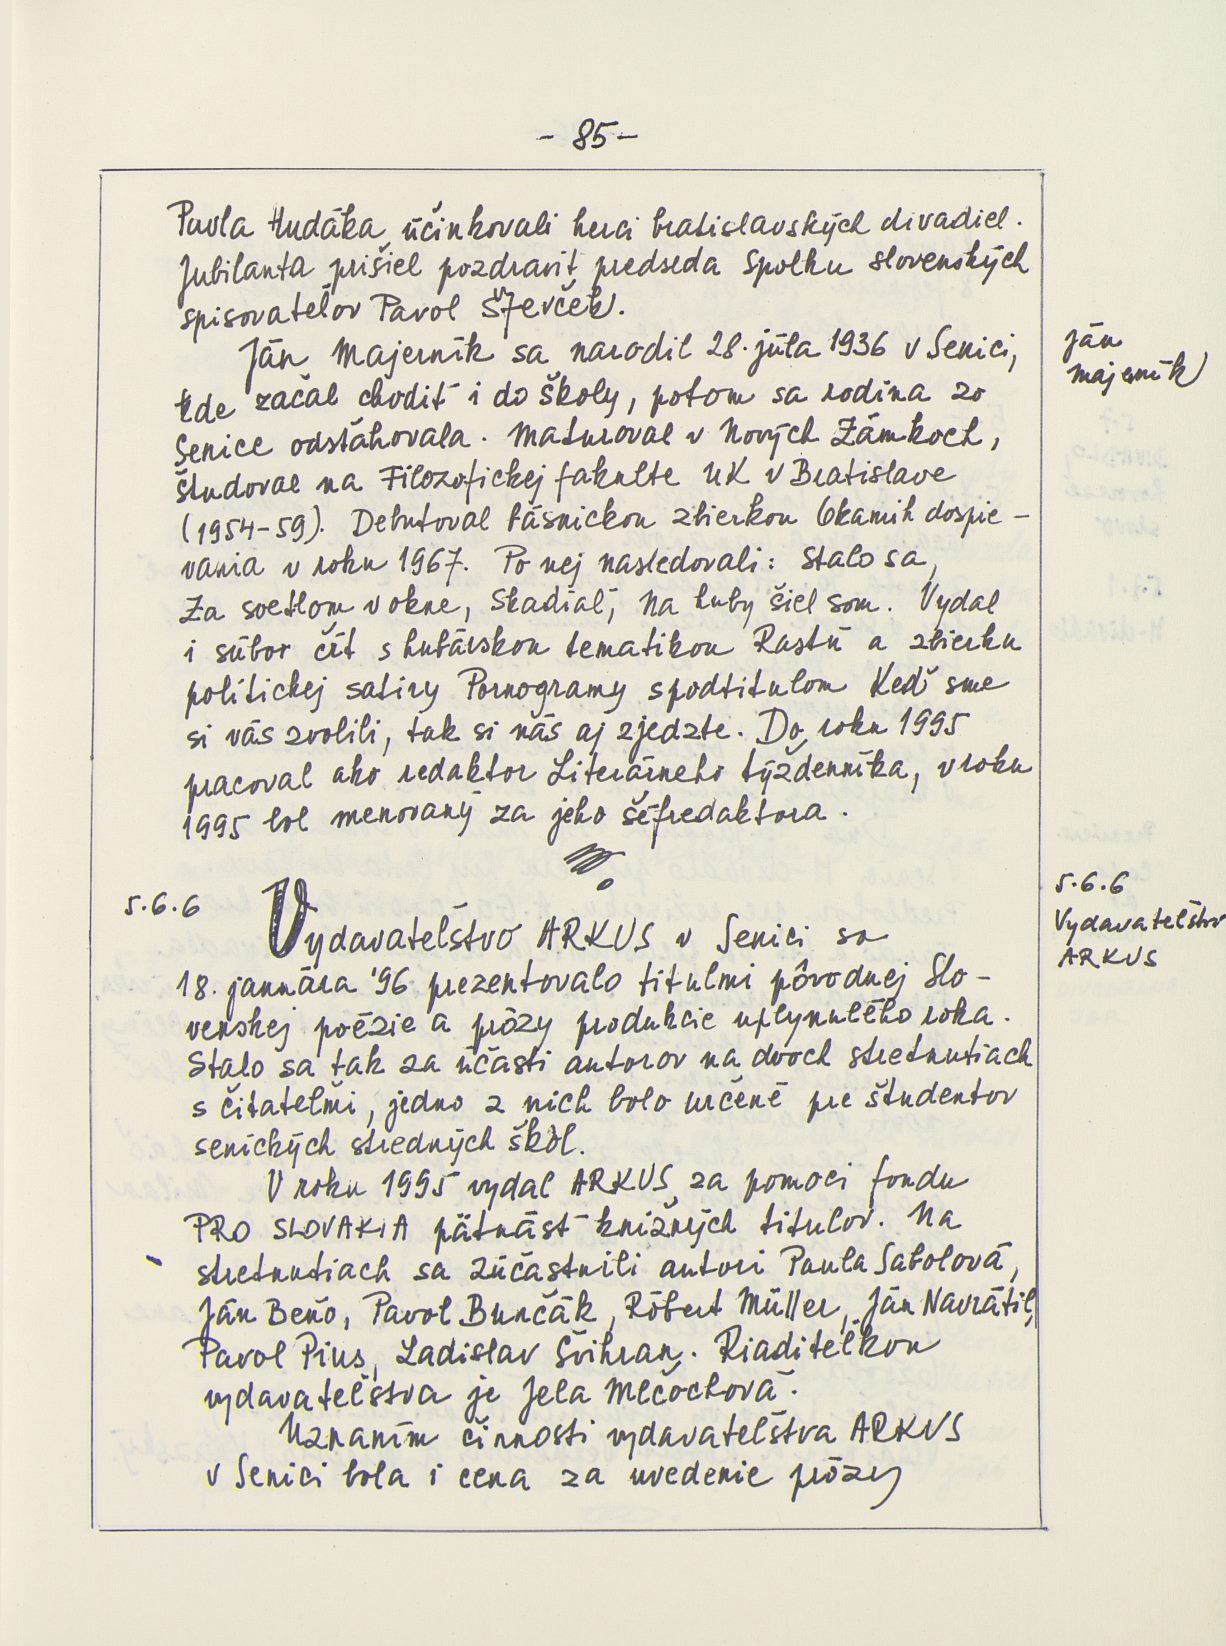 - 85 -
Pavla Hudáka účinkovali herci bratislavských divadiel.
Jubilanta prišiel pozdraviť predseda Spolku slovenských
spisovateľov Pavol Števček.
Ján Majerník sa narodil 28. júla 1936 v Senici,
Ján
Majerník
kde začal chodiť i do školy, potom sa rodina zo
Senice odsťahovala. Maturoval v Nových Zámkoch,
študoval na Filozofickej fakulte UK v Bratislave
(1954-59). Debutoval básnickou zbierkou Okamih dospie-
vania v roku 1967. Po nej nasledovali: Stalo sa,
Za svetlom v okne, Skadiaľ, Na huby šiel som. Vydal
i súbor čŕt s hubárskou tematikou Rastú a zbierku
politickej satiry Pornogramy s podtitulom Keď sme
si vás zvolili, tak si nás aj zjedzte. Do roku 1995
pracoval ako redaktor Literárneho týždenníka, v roku
1995 bol menovaný za jeho šéfredaktora.
5.6.6
5.6.6
Vydavateľstvo
ARKUS
Vydavateľstvo ARKUS v Senici sa
18. januára '96 prezentovalo titulmi pôvodnej Slo-
venskej poézie a prózy produkcie uplynulého roka.
Stalo sa tak za účasti autorov na dvoch stretnutiach
s čitateľmi, jedno z nich bolo určené pre študentov
senických stredných škôl.
V roku 1995 vydal ARKUS za pomoci fondu
PRO SLOVAKIA pätnásť knižných titulov. Na
stretnutiach sa zúčastnili autori Paula Sabolová,
Ján Beňo, Pavol Bunčák, Róbert Müller, Ján Navrátil,
Pavol Pius, Ladislav Švihran. Riaditeľkou
vydavateľstva je Jela Mlčochová.
Uznaním činnosti vydavateľstva ARKUS
v Senici bola i cena za uvedenie prózy